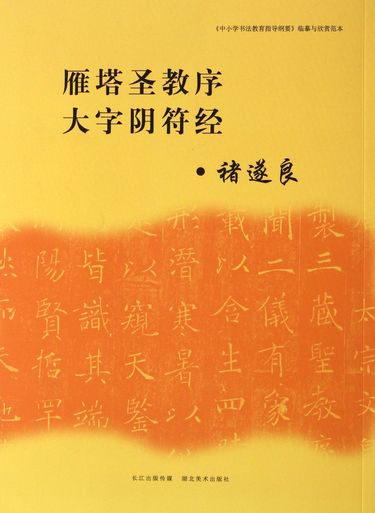 《中小学书法教育指导纲要》临摹与欣赏范本
雁塔圣教序
大字阴符经
·褚遂良
太宗
製三藏聖教序
聞二儀有象
載以含生四
形潛寒暑
是以窺天鑒
皆識其端
陽賢哲罕
长江出版传媒 湖北美术出版社